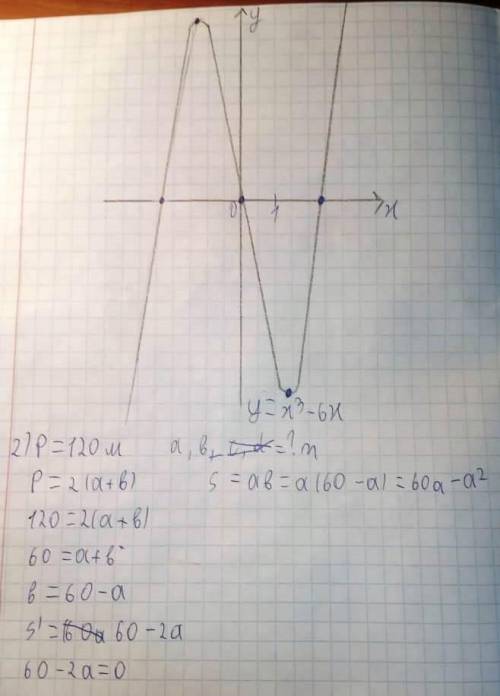 y
0 1 x
y=x³-6x
2) P=120 м a, b, =?
P=2(a+b) S=ab=a(60-a)=60a-a²
120=2(a+b)
60=a+b
b=60-a
S'= 60-2a
60-2a=0